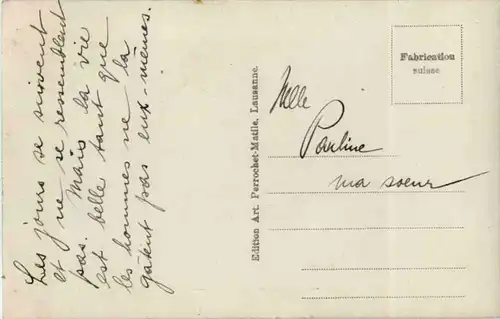 Les jours se suivent
et ne se ressemblent
pas. Mais la vie
est belle tant que
les hommes ne la
gâtent pas eux-mêmes.
Edition Art. Perrochet-Matile, Lausanne.
Fabrication
suisse
Mlle
Pauline
ma soeur